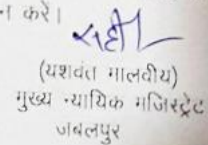 न करें।
सही/-
(यशवंत मालवीय)
मुख्य न्यायिक मजिस्ट्रेट
जबलपुर